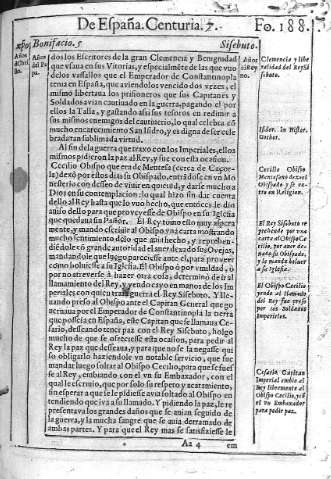 De España. Centuria. 7. Fo. 188.
Bonifacio. 5 Sisebuto.
dos los Escritores de la gran Clemencia y Benignidad
que usava en sus Vitorias, y especialmẽte de las que vuo
de los vasallos que el Emperador de Constantinopla
tenia en España, que aviendolos vencido dos vezes, el
mismo libertava los prisioneros que sus Capitanes y
Soldados avian cautivado en la guerra, pagando el por
ellos la Talla, y gastando assi sus tesoros en redimir a
sus mismos enemigos del cautiverio, lo qual celebra cõ
mucho encarecimiento San Isidro, y es digna de ser cele
brada tan sublimada virtud.
Al fin de la guerra que travo con los Imperiales, ellos
mismos pidieron la paz al Rey, y fue con esta ocasion.
Cecilio Obispo que era de Mentesa (cerca de Caçor-
la) dexò por estos dias su Obispado, entrãdose en vn Mo
nesterio con desseo de vivir en quietud, y darse mucho a
Dios en su contemplacion: lo qual hizo sin dar cuenta
dello al Rey hasta que lo vuo hecho, que entonces le dio
aviso dello para que proveyesse de Obispo en su Iglesia
que quedava sin Pastor. El Rey tomò esto muy aspera
mente, y mandò escrivir al Obispo vna carta mostrando
mucho sentimiento de lo que avia hecho, y reprovan-
mandandole que luego pareciesse ante el, para proveer
como bolviesse a su Iglesia. El Obispo ò por vmildad, ò
por no atreverse à hazer otra cosa, determinò de ir al
llamamiento del Rey, y yendo cayo en manos de los Im
periales con quien tratava guerra el Rey Sisebuto. Y lle-
vando preso al Obispo ante el Capitan General que go
vernava por el Emperador de Constantinopla la tierra
que posseía en España, este Capitan que se llamava Ces-
ario, desseando tener paz con el Rey Sisebuto, holgo
mucho de que se ofreciesse esta ocasion, para pedir al
Rey la paz que desseava, y para que no se la negasse qui
so obligarlo haziendole vn notable servicio, que fue
mandar luego soltar al Obispo Cecilio, para que se fues-
se al Rey, embiando con el vn su Embaxador, con el
qual le escrivio, que por solo su respeto y acatamiento,
sin esperar a que se le pidiesse avia soltado al Obispo en
tendiendo que iva a su llamado. Y pidiendo la paz, le re
presentava los grandes daños que se avian seguido de
la guerra, y la mucha sangre que se avia derramado de
ambas partes. Y para que el Rey mas se satisfiziesse de
Aa 4 em
Clemencia y libe
ralidad del Rey Si
sebuto.
Isidor. in Histor.
Gothor.
Cecilio Obispo
Mentesano dexa el
Obispado y se en
tra en Religion.
El Rey Sisebuto re
prehende por vna
carta al Obispo Ce
cilio, por aver dexa
do su Obispado,
y le manda bolver
a su Iglesia.
El Obispo Cecilio
yendo al llamado
del Rey fue preso
por los Soldados
Imperiales.
Cesario Capitan
Imperial embia al
Rey libremente al
Obispo Cecilio, y cõ
el vn Embaxador
para pedir paz.